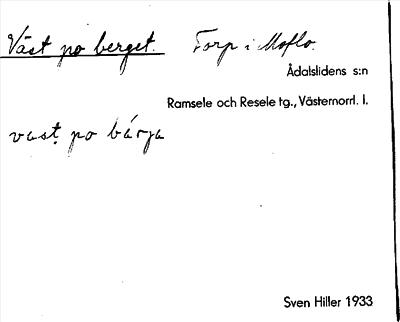 Väst po berget. Torp i Moflo.
Ådalslidens s:n
Ramsele och Resele tg., Västernorrl. l.
vast po bárja
Sven Hiller 1933